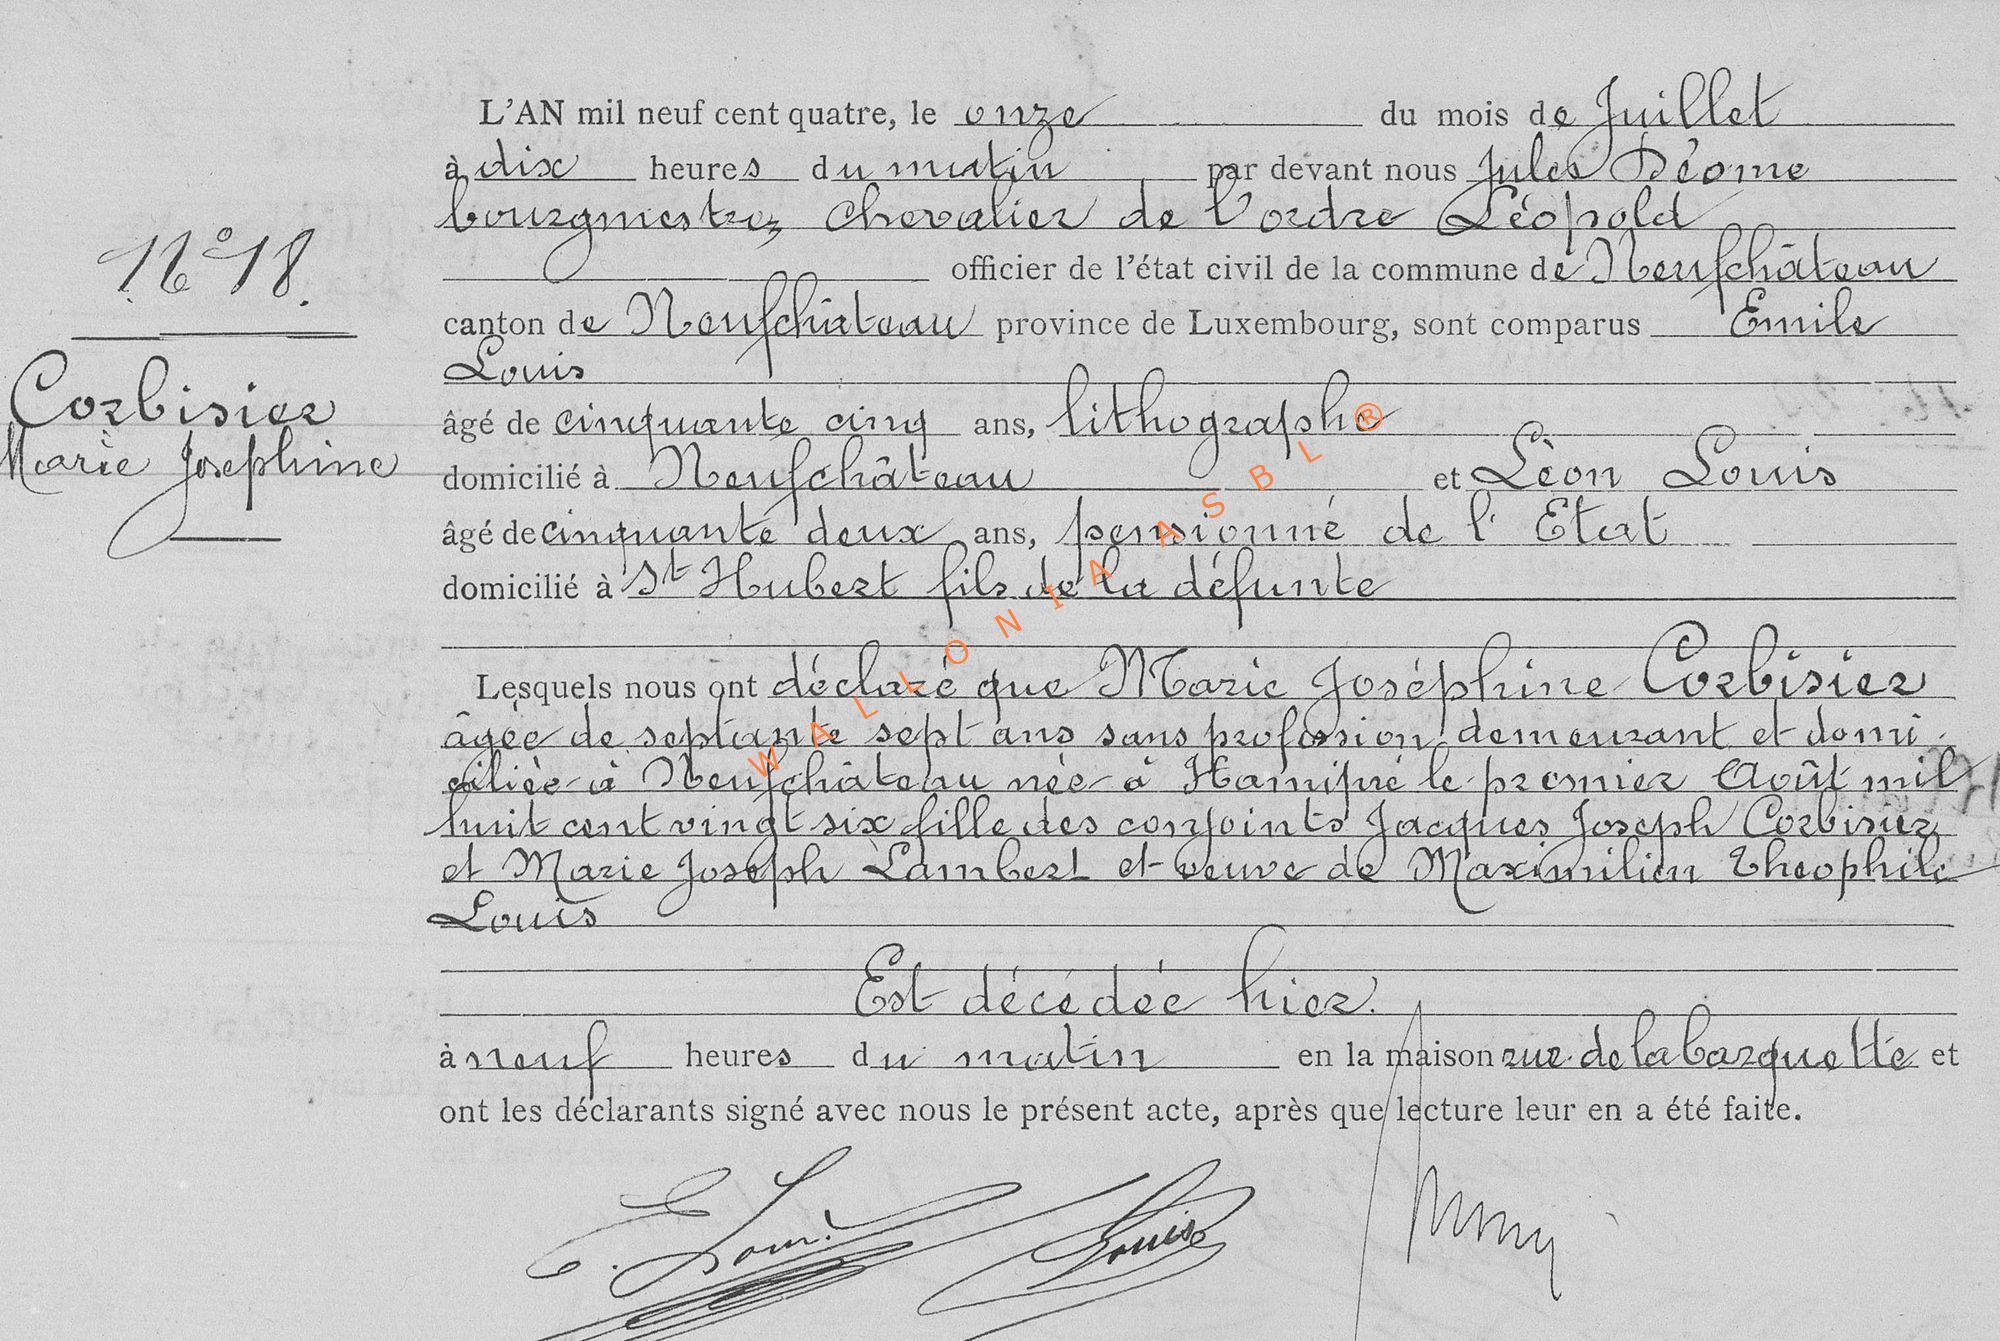 N° 18.
Corbisier
Marie Josephine
L'AN mil neuf cent quatre, le onze du mois de Juillet
à dix heures du matin par devant nous Jules Déome
bourgmestre, chevalier de l'ordre Léopold
officier de l'état civil de la commune de Neufchâteau
canton de Neufchâteau province de Luxembourg, sont comparus Emile
Louis
âgé de cinquante cinq ans, lithographe
domicilié à Neufchâteau et Léon Louis
âgé de cinquante deux ans, pensionné de l'Etat
domicilié à St Hubert fils de la défunte
Lesquels nous ont déclaré que Marie Joséphine Corbisier
âgée de septante sept ans sans profession demeurant et domi
ciliée à Neufchâteau née à Hamipré le premier Août mil
huit cent vingt six fille des conjoints Jacques Joseph Corbisier
et Marie Joseph Lambert et veuve de Maximilien Theophile
Louis
Est décédée hier.
à neuf heures du matin en la maison rue de la barquette et
ont les déclarants signé avec nous le présent acte, après que lecture leur en a été faite.
E. Louis Louis
WALLONIA ASBL ®